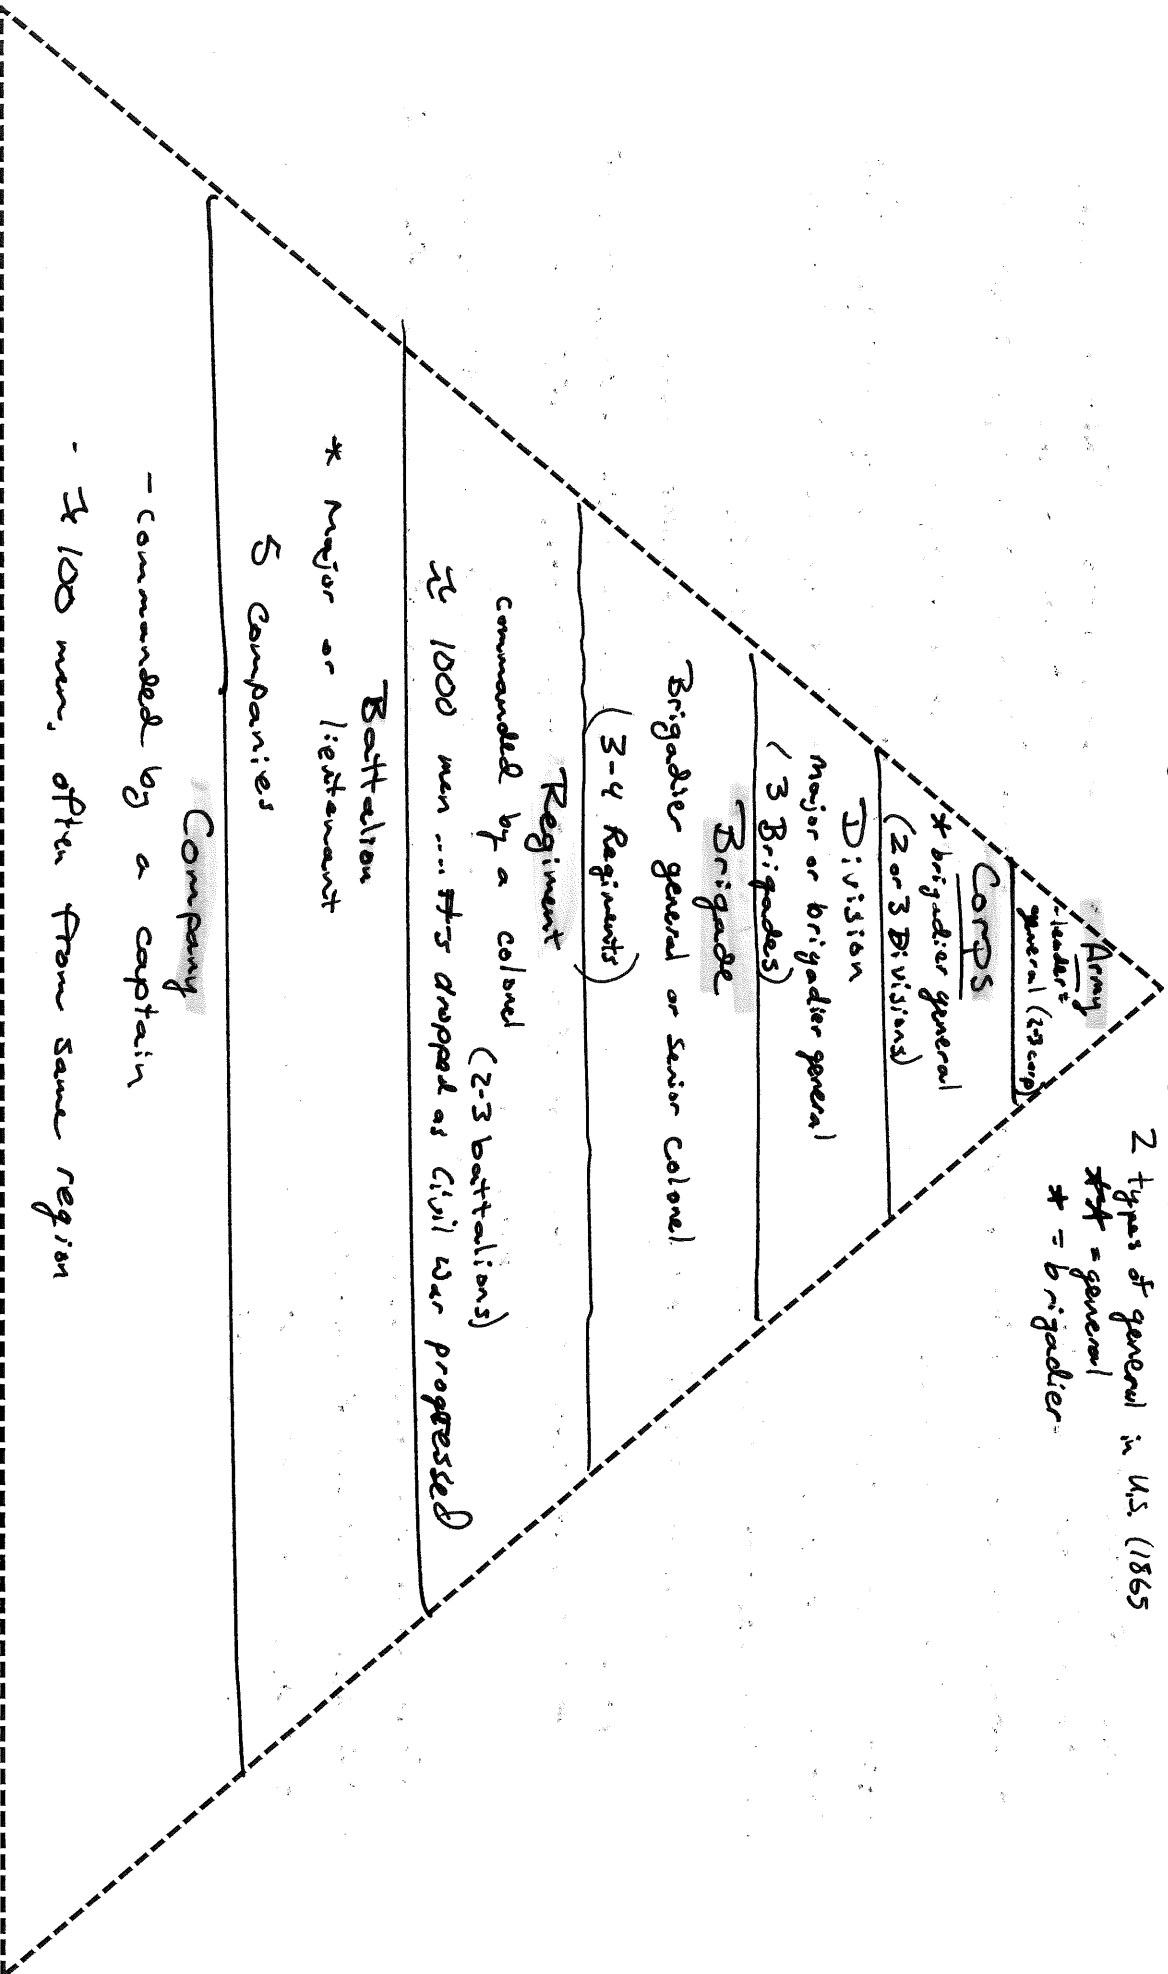 2 types of general in U.S. (1865
** = general
* = brigadier
Army
- leader =
general (2-3 corp)
Corps
* brigadier general
(2 or 3 Divisions)
Division
major or brigadier general
(3 Brigades)
Brigade
Brigadier general or senior colonel
(3-4 Regiments)
Regiment
commanded by a colonel (2-3 battalions)
≈ 1000 men .... #'s dropped as Civil War progressed
Battalion
* major or lieutenant
5 companies
Company
- commanded by a captain
- ≈ 100 men, often from same region